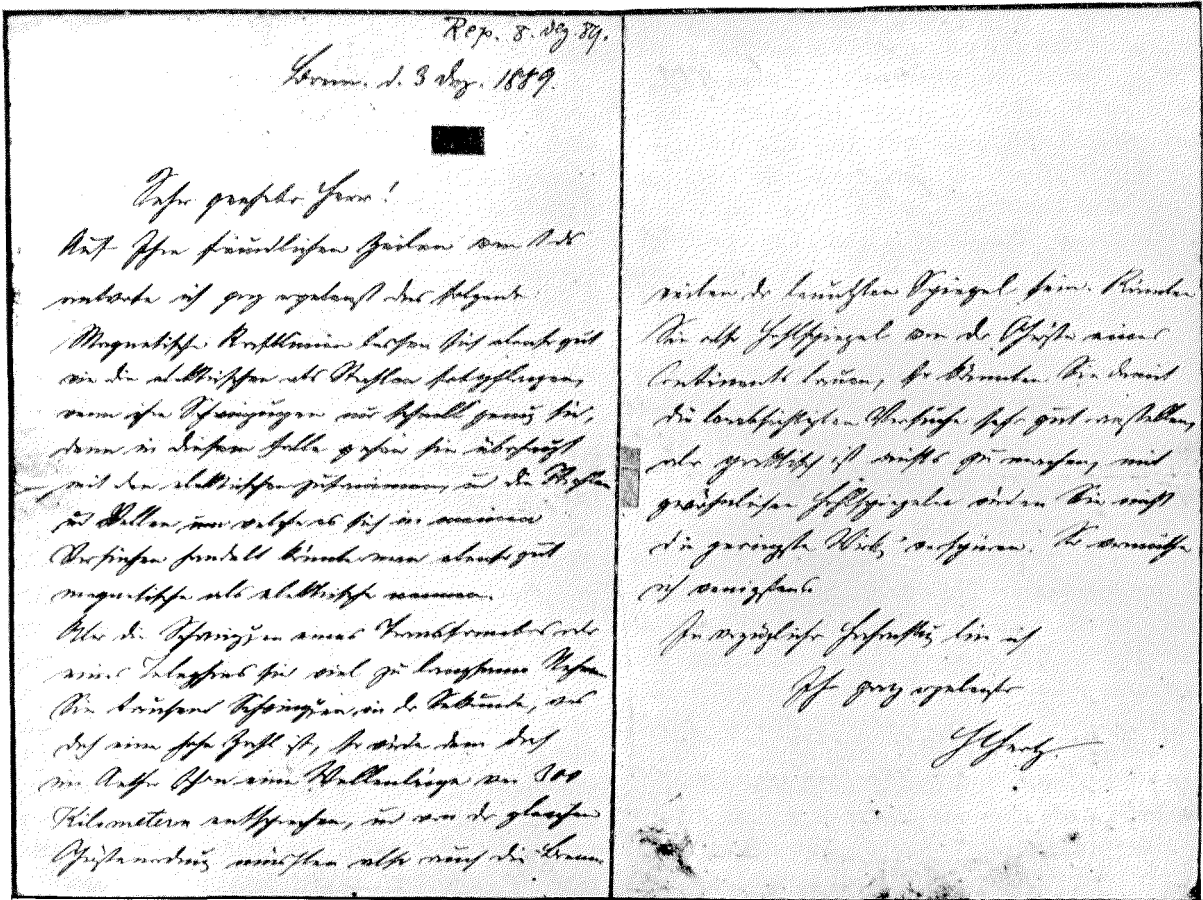 Rep. 8. Dez. 89.
Bonn. d. 3 Dez. 1889.
Sehr geehrter Herr!
Auf Ihre freundlichen Zeilen vom 1 ds
antworte ich ganz ergebenst das folgende
Magnetische Kraftlinien lassen sich ebenso gut
wie die elektrischen als Strahlen fortpflanzen,
wenn ihre Schwingungen nur schnell genug sind,
denn in diesem Falle gehen sie überhaupt
mit den elektrischen zusammen, und die Strahlen
und Wellen um welche es sich in meinen
Versuchen handelt könnte man ebenso gut
magnetische als elektrische nennen.
Aber die Schwingungen eines Transformators oder
eines Telephons sind viel zu langsam. Nehmen
Sie tausend Schwingungen in der Sekunde, was
doch eine hohe Zahl ist, so würde dem doch
im Aether schon eine Wellenlänge von 300
Kilometern entsprechen, und von der gleichen
Größenordnung müssten also auch die Brenn
weiten der benutzten Spiegel sein. Könnten
Sie also Hohlspiegel von der Größe eines
Continents bauen, so könnten Sie damit
die beabsichtigten Versuche sehr gut anstellen,
aber praktisch ist nichts zu machen, mit
gewöhnlichen Hohlspiegeln würden Sie nicht
die geringste Wirkg verspüren. So vermuthe
ich wenigstens
In vorzüglicher Hochachtung bin ich
Ihr ganz ergebenster
H Hertz.